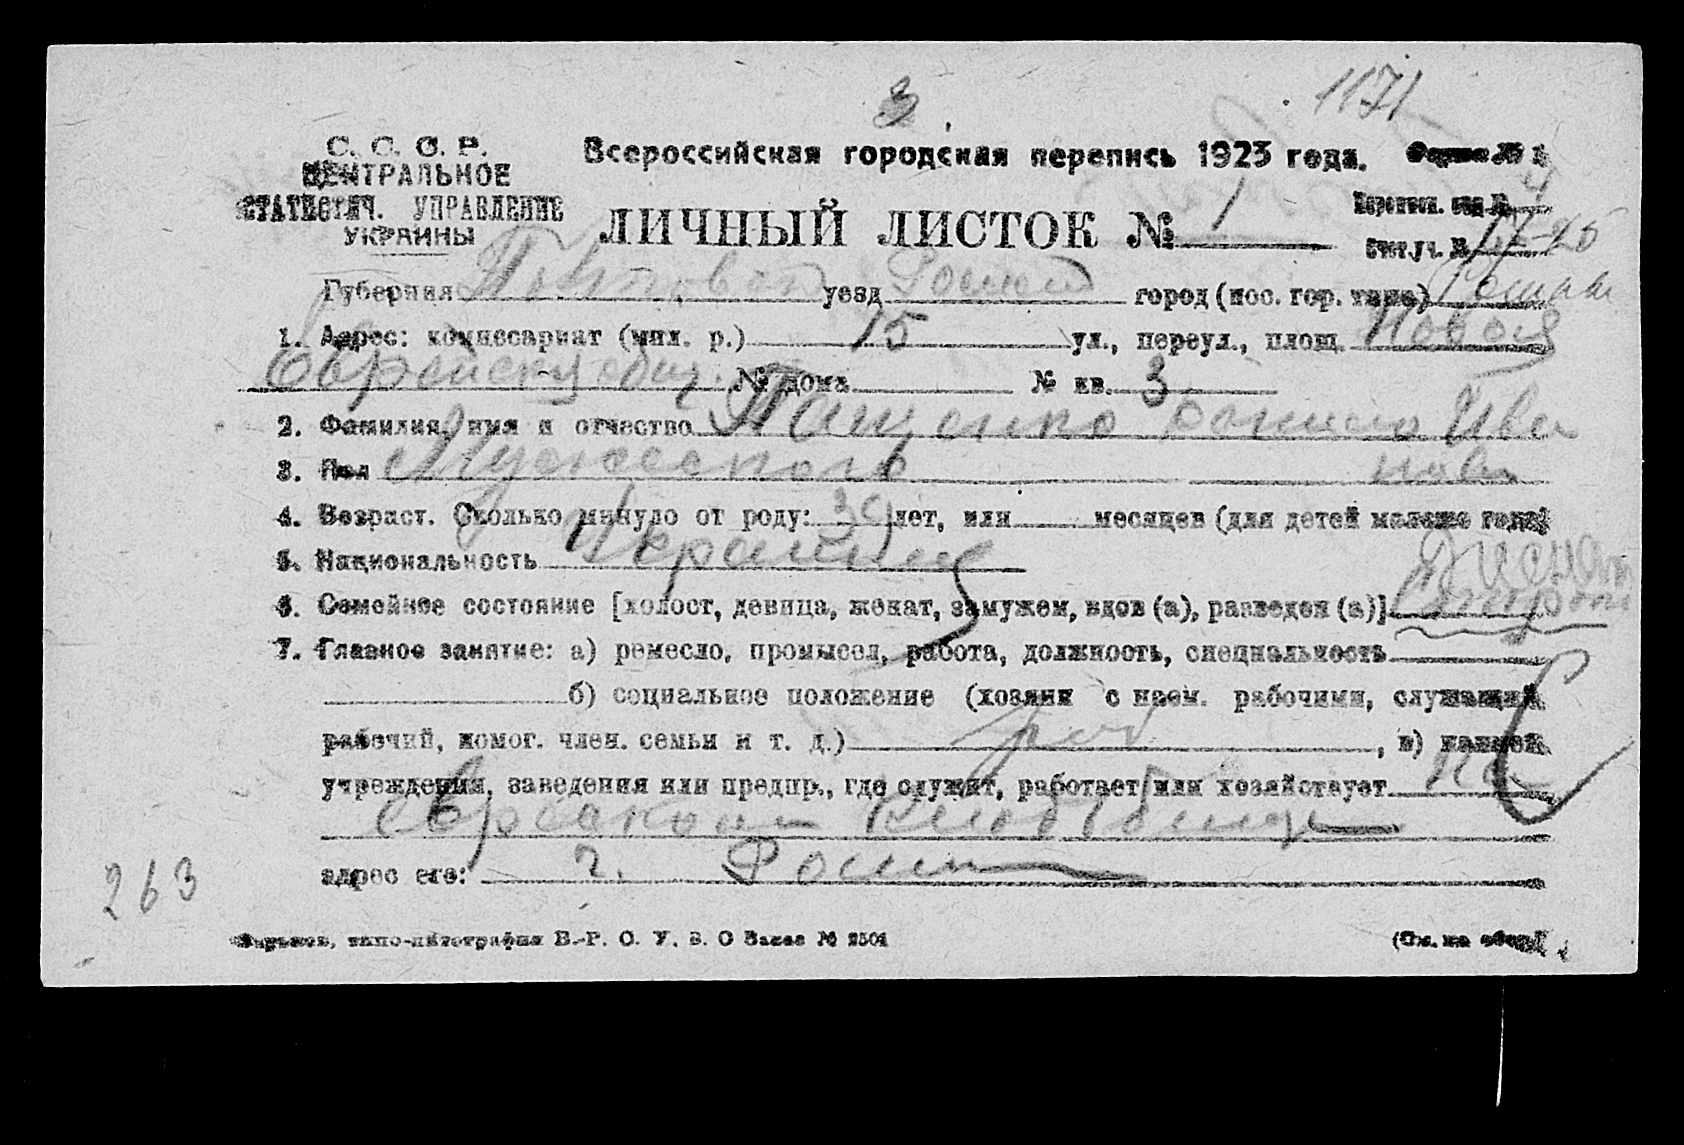 3
1171
С. С. С. Р.
ЦЕНТРАЛЬНОЕ
СТАТИСТИЧ. УПРАВЛЕНИЕ
УКРАИНЫ
Всероссийская городская перепись 1923 года.
Форма № 2
ЛИЧНЫЙ ЛИСТОК № 1
Переписн. отд. № 4
Счет. уч. №
Губерния Полтавская уезд город (пос. гор. типа)
1. Адрес: комиссариат (мил. р.) 15 ул., переул., площ. Новая
Еврейская № дома № кв. 3
2. Фамилия, имя и отчество Пащенко Данило Ива
нович
3. Пол Мужеского
4. Возраст. Сколько минуло от роду: 39 лет, или месяцев (для детей моложе года)
5. Национальность Украинец
6. Семейное состояние [холост, девица, женат, замужем, вдов (а), разведен (а)]
7. Главное занятие: а) ремесло, промысел, работа, должность, специальность
б) социальное положение (хозяин с наем. рабочими, служащий,
рабочий, помог. член. семьи и т. д.) раб , в) наимен.
учреждения, заведения или предпр., где служит, работает или хозяйствует на
еврейском кладбище
адрес его: г. Ромны
263
Харьков, типо-литография В.-Р. О. У. В. О Заказ № 2501
(См. на обор.)